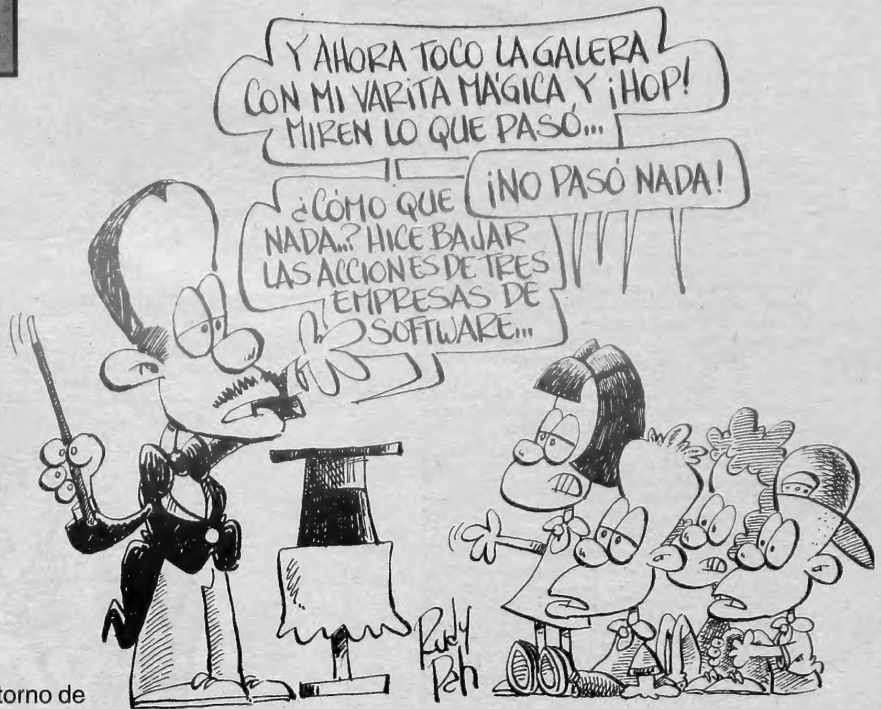 Y AHORA TOCO LA GALERA
CON MI VARITA MÁGICA Y ¡HOP!
MIREN LO QUE PASÓ...
¡NO PASÓ NADA!
¿CÓMO QUE
NADA..? HICE BAJAR
LAS ACCIONES DE TRES
EMPRESAS DE
SOFTWARE...
Rudy
torno de